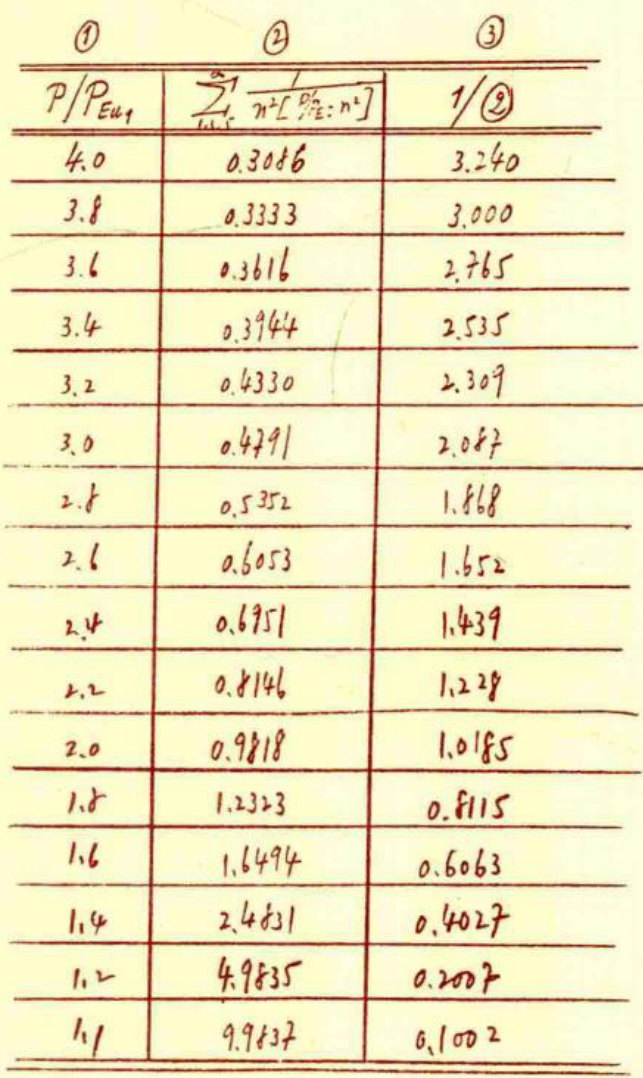 ① ② ③
P/P_Eu₁ ∑ 1/n²[P/P_E - n²] 1/②
4.0 0.3086 3.240
3.8 0.3333 3.000
3.6 0.3616 2.765
3.4 0.3944 2.535
3.2 0.4330 2.309
3.0 0.4791 2.087
2.8 0.5352 1.868
2.6 0.6053 1.652
2.4 0.6951 1.439
2.2 0.8146 1.228
2.0 0.9818 1.0185
1.8 1.2323 0.8115
1.6 1.6494 0.6063
1.4 2.4831 0.4027
1.2 4.9835 0.2007
1.1 9.9837 0.1002